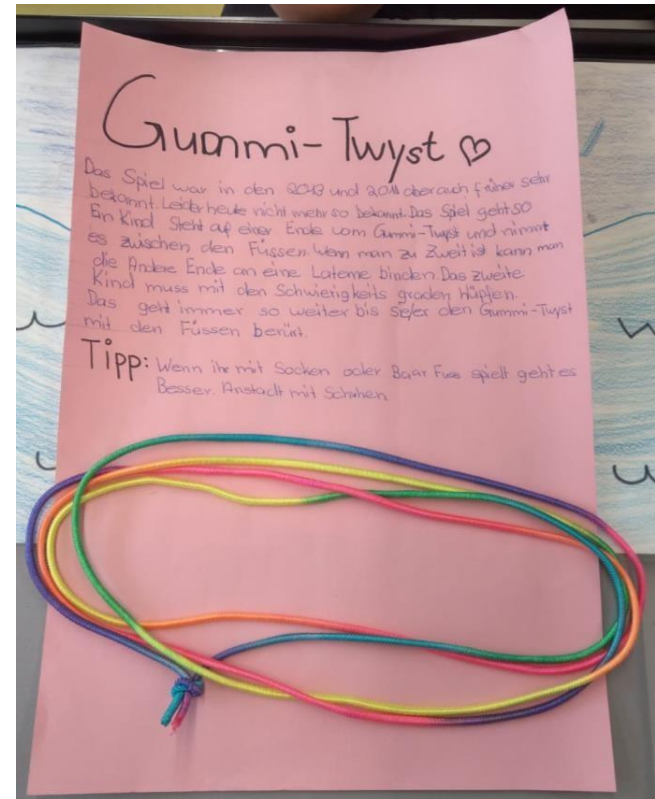 Gummi-Twyst ♡
Das Spiel war in den 2013 und 2011 aber auch früher sehr
bekannt. Leider heute nicht mehr so bekannt. Das Spiel geht so
Ein Kind Steht auf einer Ende vom Gummi-Twyst und nimmt
es zwischen den Füssen. Wenn man zu Zweit ist kann man
die Andere Ende an eine Laterne binden. Das zweite
Kind muss mit den Schwierigkeits graden Hüpfen.
Das geht immer so weiter bis den Gummi-Twyst
mit den Füssen berürt.
Tipp: Wenn ihr mit Socken oder Baar Fuss spielt geht es
Besser. Anstadt mit Schuhen